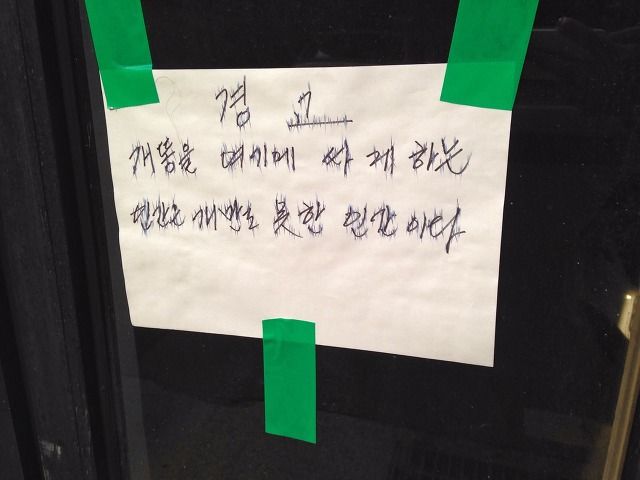 경 고
개똥을 여기에 싸게 하는
인간은 개만도 못한 인간이다